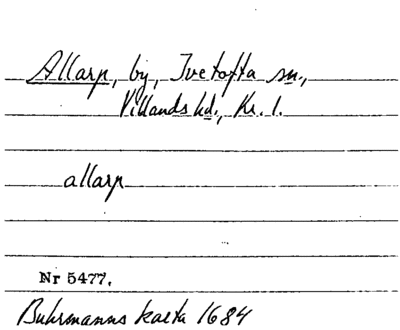 Allarp, by, Ivetofta sn.,
Villands hd., Kr. l.
allarp
Nr 5477.
Buhrmanns karta 1684